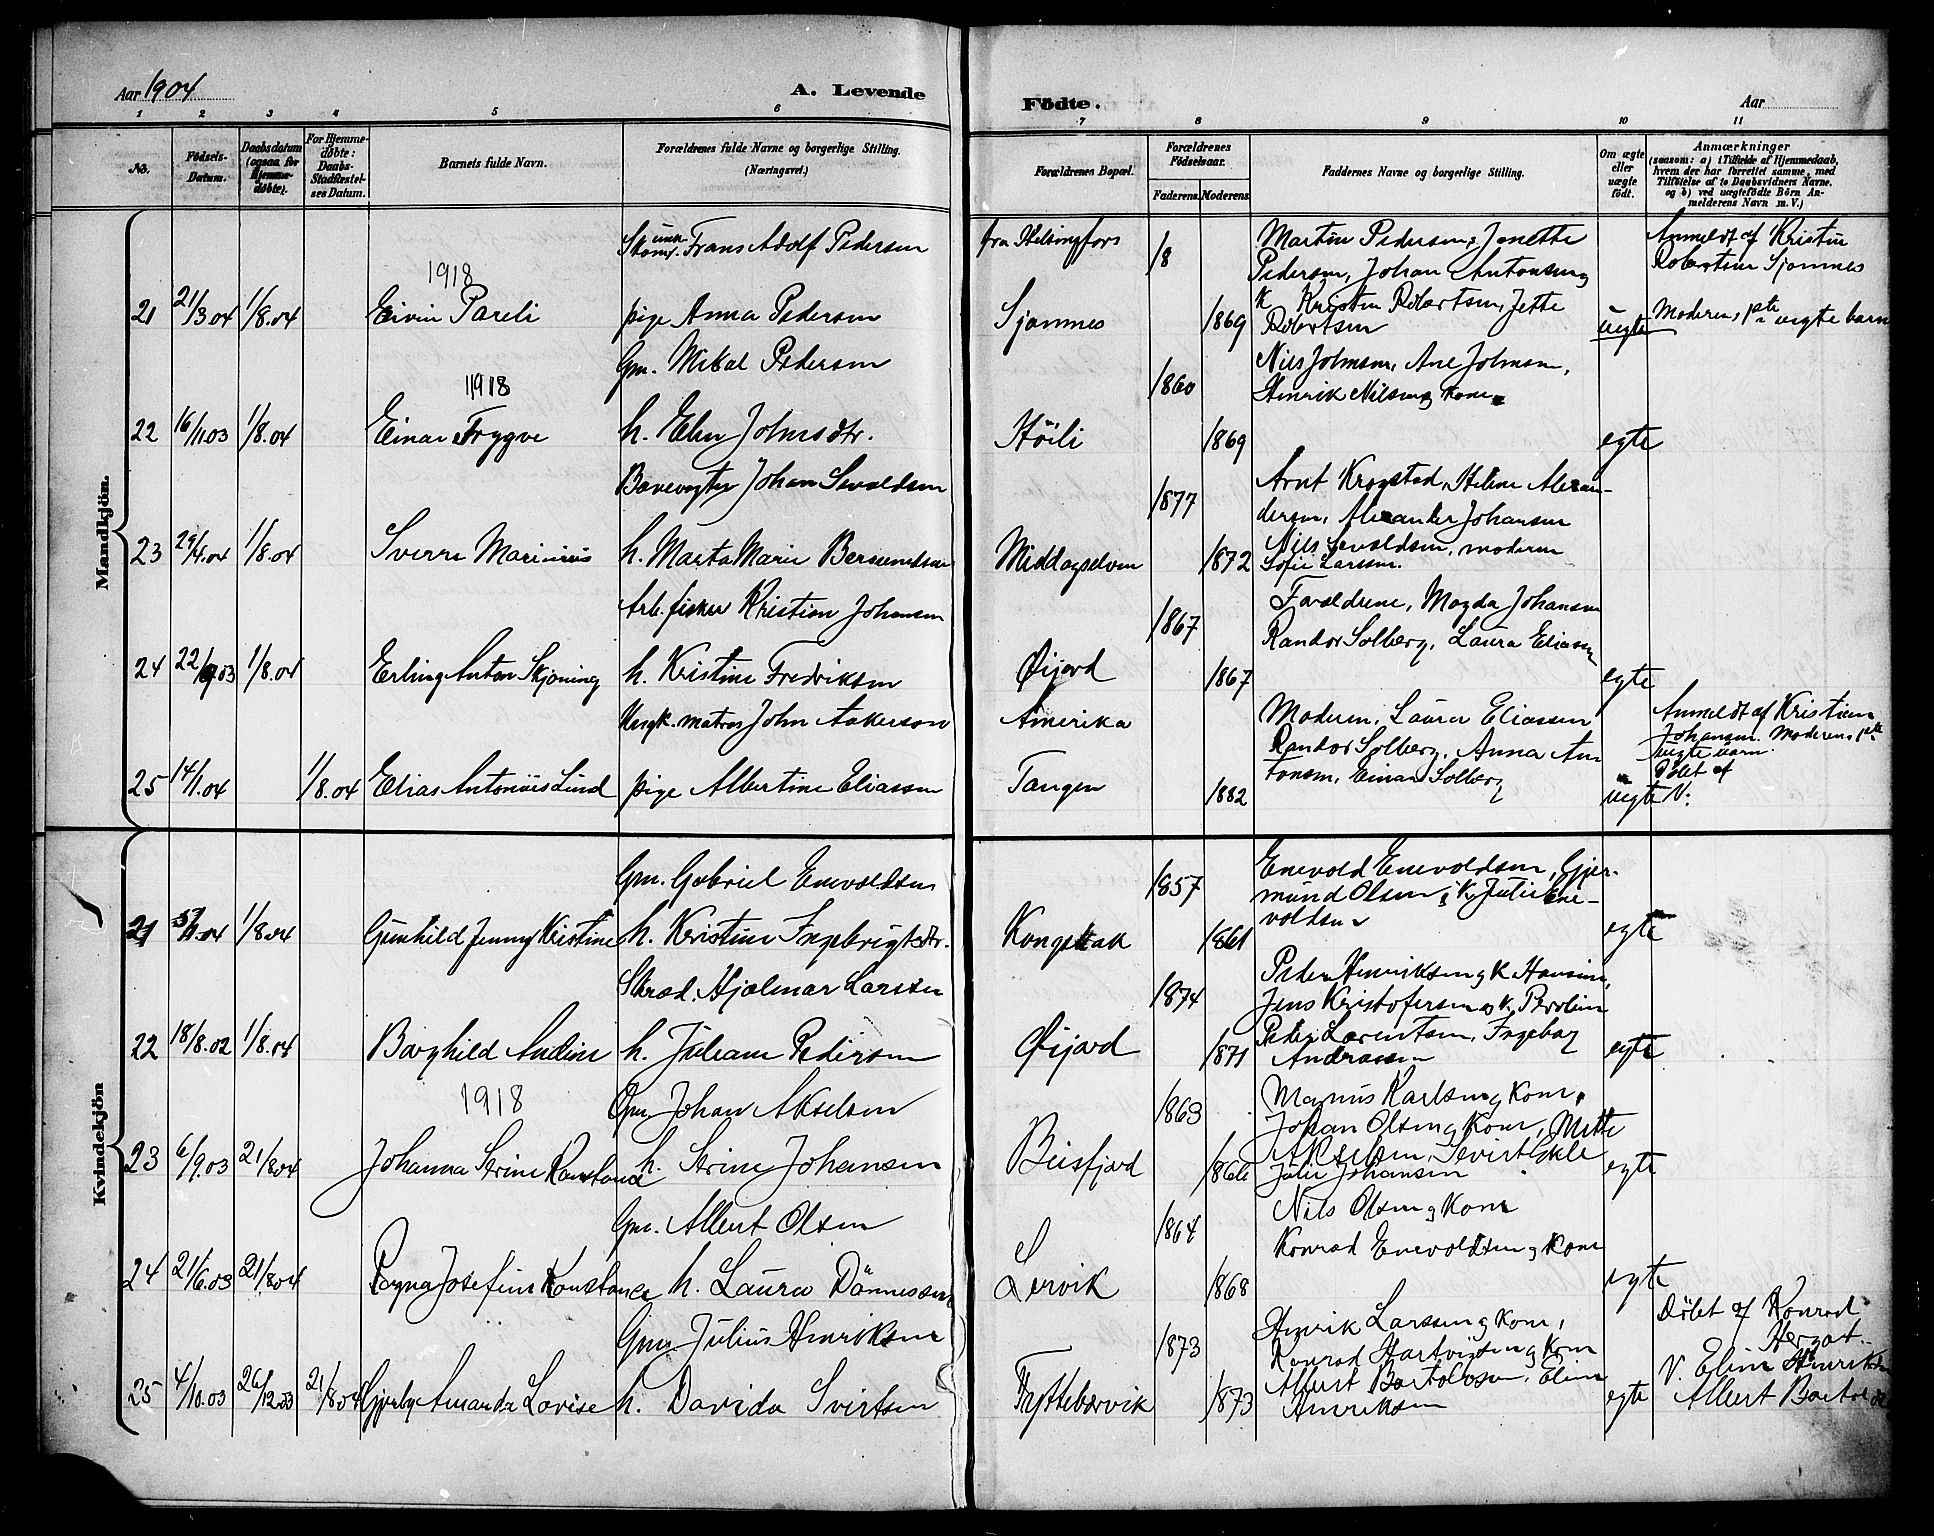 Aar 1904
A. Levende
Födte.
Aar
1 2 3 4 5 6 7 8 9 10 11
No.
Fødsels-
Datum.
Daabsdatum
(ogsaa for
Hjemme-
døbte).
For Hjemme-
døbte:
Daabs-
Stadfæstel-
ses Datum.
Barnets fulde Navn.
Forældrenes fulde Navne og borgerlige Stilling.
(Næringsvei.)
Forældrenes Bopæl.
Forældrenes
Fødselsaar.
Faderens
Moderens
Faddernes Navne og borgerlige Stilling.
Om ægte
eller
uægte
født.
Anmærkninger
(saasom: a) i Tilfælde af Hjemmedaab,
hvem der har forrettet samme, med
Tilføielse af to Daabsvidners Navne,
og b) ved uægtefødte Børn An-
melderens Navn m. V.)
Mandkjön.
Frans Adolf Pedersen
fra Helsingfors
18
Martin Pedersen, Jenette
Pedersen, Johan Antonsen og
K Kristin Robertsen, Jette
Robertsen
Anmeldt af Kristin
Robertsen Sjomnes
1918
21 21/3 04 1/8.04 Eivin Pareli pige Anna Pedersen Sjomnes 1869 uegte Moderens 1ste uegte barn
Gm. Mikal Pedersen
1860
Nils Johnsen, Ane Johnsen,
Henrik Nilsen og kone
1918
22 16/11.03 1/8.04 Einar Trygve h. Elen Johnsdtr. Höili 1869 egte
Banevogter Johan Sevaldsen
1877
Arnt Krogstad, Helene Alexan-
dersen, Alexander Johansen
Nils Sevaldsen, moderen
Sofie Larssen.
23 29/4.04 1/8.04 Sverre Marinius h. Marta Marie Bersvendsen Middagselven 1872
Arb. fisker Kristian Johansen
1867
Forældrene, Magda Johansen
Randor Solberg, Laura Eliassen
24 22/9.03 1/8.04 Erling Anton Skjöning h. Kristine Fredriksen Øijord 1867 egte
matros John Aakerson
Amerika
Moderen, Laura Eliassen
Randor Solberg, Anna An-
tonsen, Einar Solberg
Anmeldt af Kristian
Johansen. Moderens 1ste
uegte barn.
Döbt af
V:
25 14/1.04 1/8.04 Elias Antonius Lund pige Albertine Eliassen Tangen 1882 uegte
Kvindekjön
Gm. Gabriel Enevoldsen
1857
Enevold Enevoldsen, Gjer-
mund Olsen, K, Julie Ene-
voldsen
21 1/8.04 Gunhild Jenny Kristine h. Kristine Ingebrigtsdtr. Kongsbak 1861 egte
Skræd. Hjalmar Larsen
1874
Peder Henriksen og K Hansine,
Jens Kristofersen og K. Perolin
Peder Lorentsen, Ingeborg
Andreassen
22 18/8.02 1/8.04 Borghild Andine h. Juliane Pedersen Øijord 1871 egte
1918
Gm. Johan Akselsen
1863
Magnus Karlsen og kone,
Johan Olsen og kone, Mette
Akselsen,
Julie Johansen
23 6/9.03 21/8.04 Johanna Serine Konstance h. Serine Johansen Beisfjord 1866 egte
Gm. Albert Olsen
1864
Nils Olsen og kone
Konrad Enevoldsen og kone
24 21/6.03 21/8.04 Ragna Josefine Konstance h. Laura Dönnessen Lervik 1868 egte
Gm. Julius Henriksen
1873
Henrik Larssen og kone,
Konrad Hartvigsen og kone
Albert Bartolosen, Eline
Henriksen
Döbt af Konrad
V. Eline Henriksen
Albert Bartolosen
25 4/10.03 26/12.03 21/8.04 Amanda Lovise h. Davida Sivertsen Fyttebærvik 1873 egte